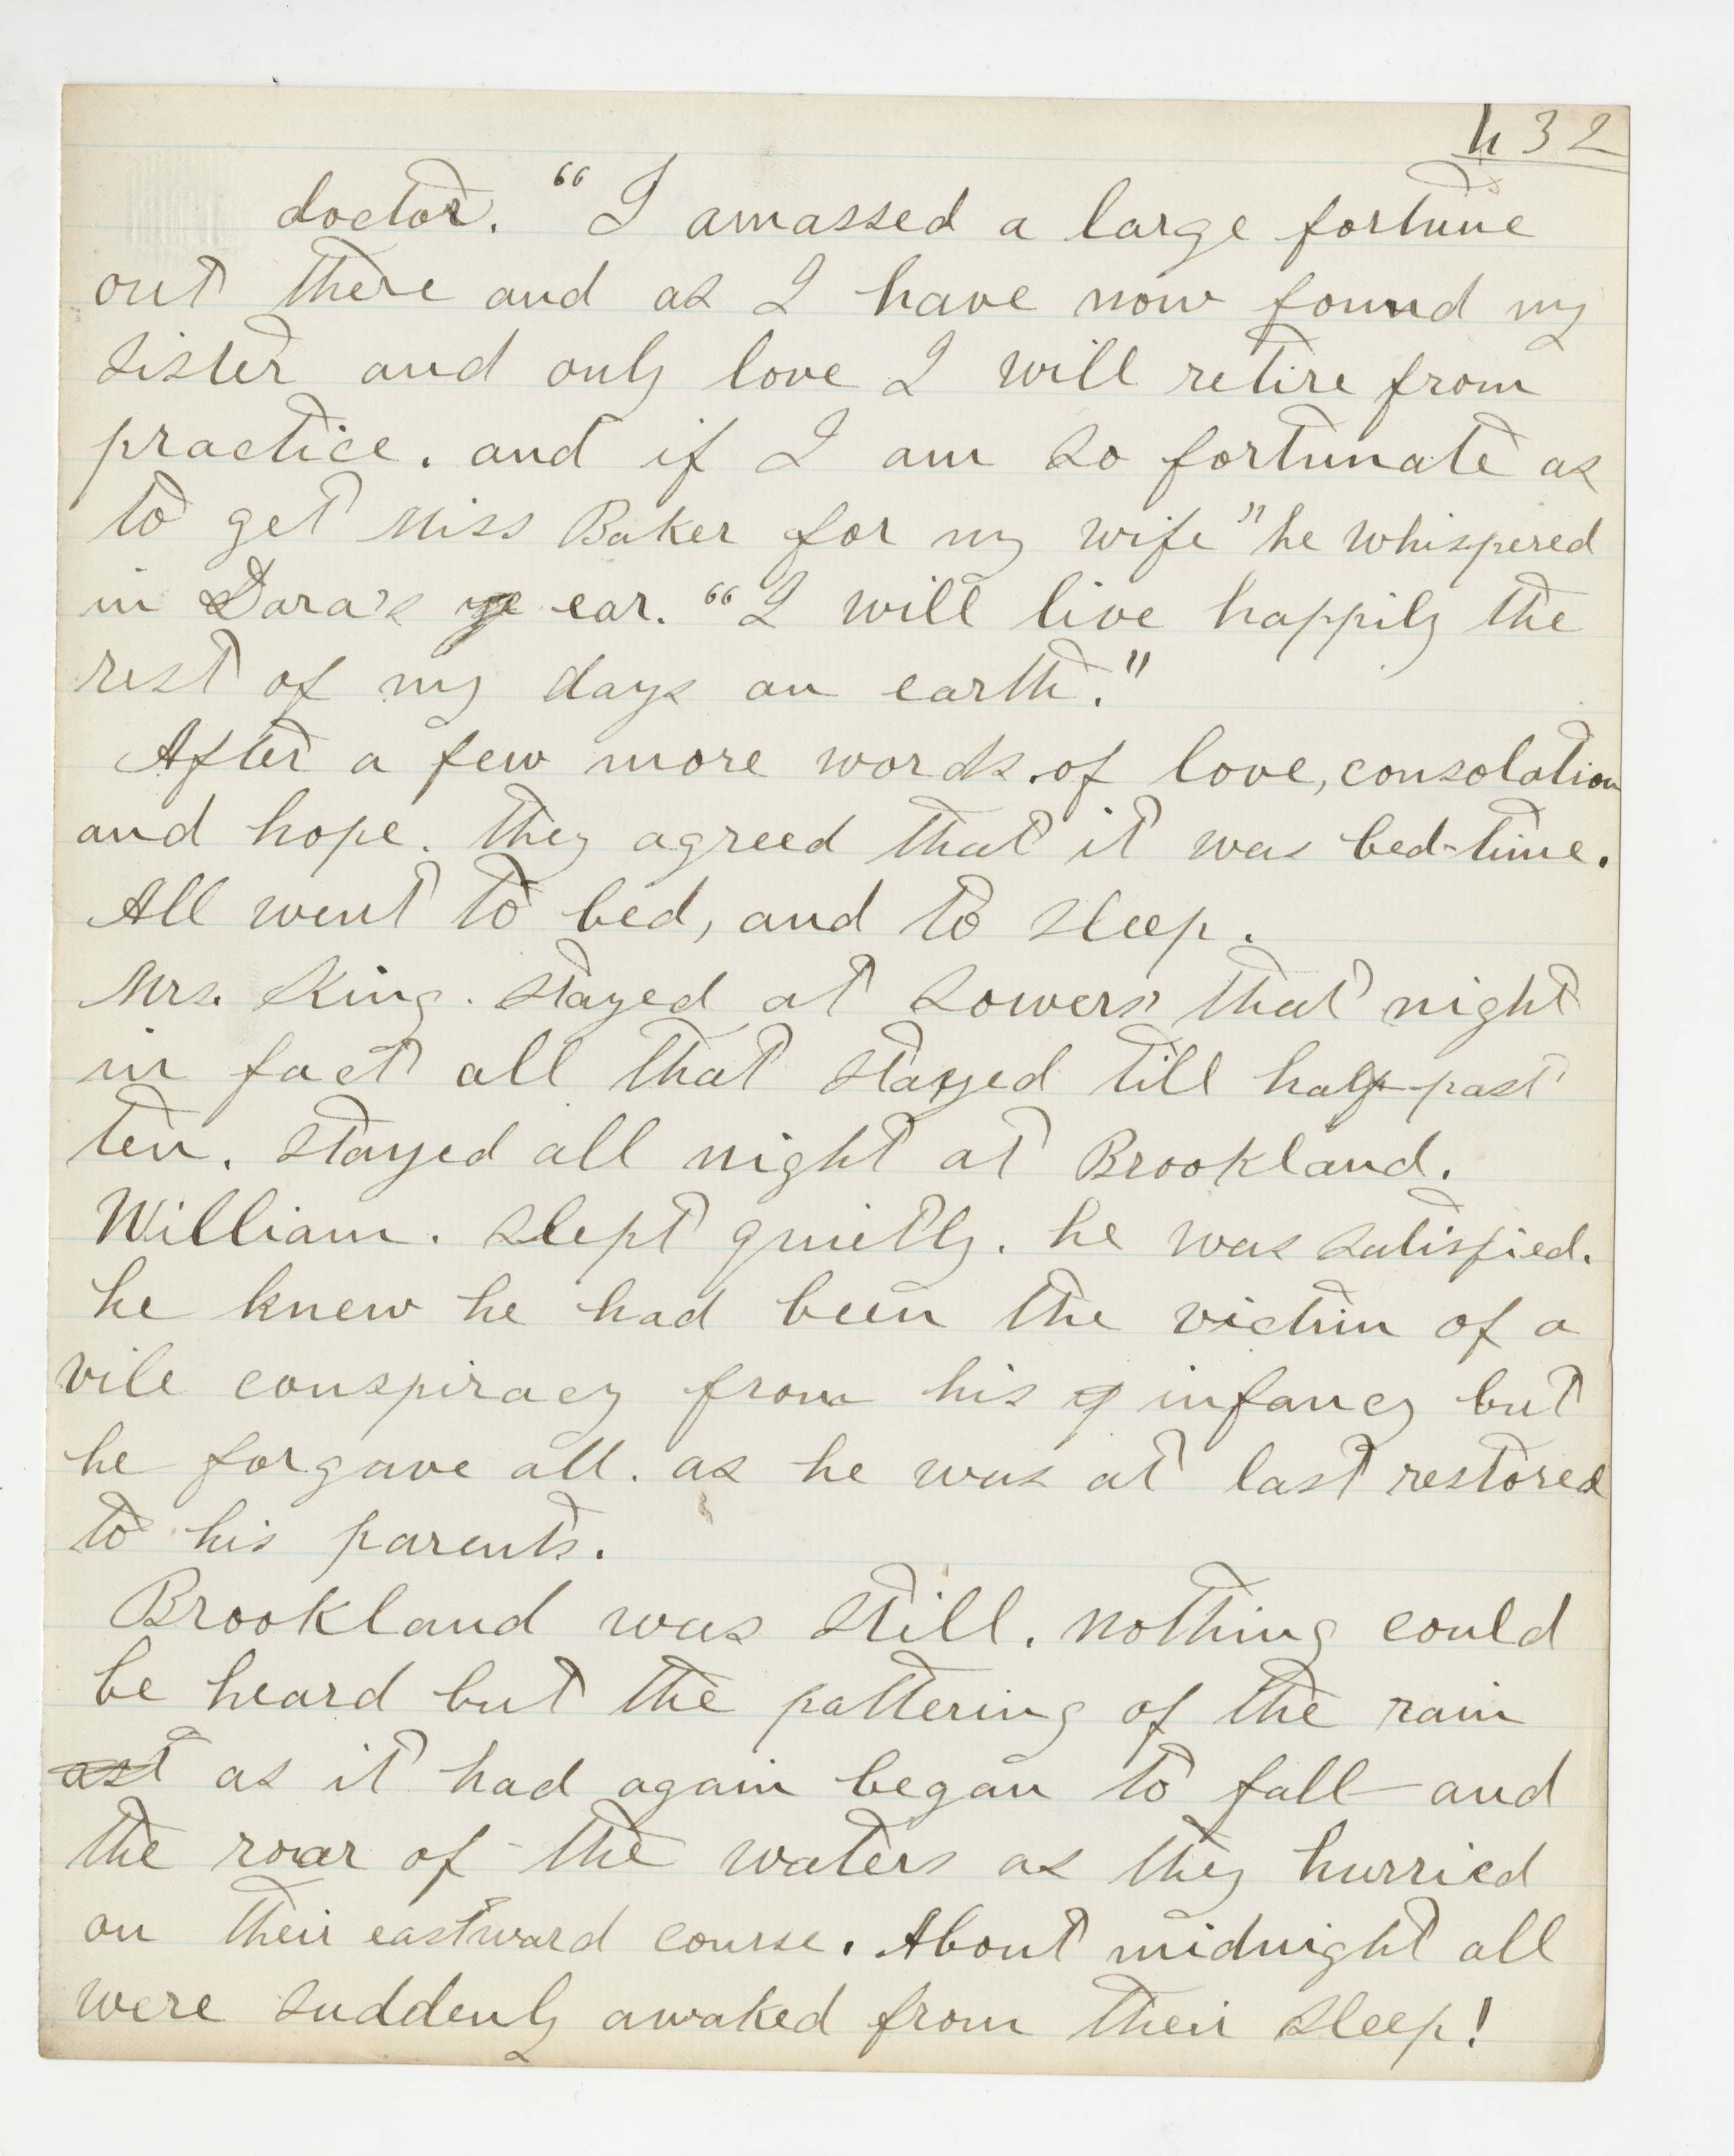 432
doctor. "I amassed a large fortune
out there and as I have now found my
sister and only love I will retire from
practice. and if I am so fortunate as
to get Miss Baker for my wife" he whispered
in Dora's ear. "I will live happily the
rest of my days on earth."
After a few more words of love, consolation
and hope. they agreed that it was bed-time.
All went to bed, and to sleep.
Mrs. King. stayed at Sowers' that night
in fact all that stayed till half-past
ten. stayed all night at Brookland.
William. slept quietly. he was satisfied.
he knew he had been the victim of a
vile conspiracy from his infancy but
he forgave all. as he was at last restored
to his parents.
Brookland was still. nothing could
be heard but the pattering of the rain
ast as it had again began to fall and
the roar of the waters as they hurried
on their eastward course. About midnight all
were suddenly awaked from their sleep!